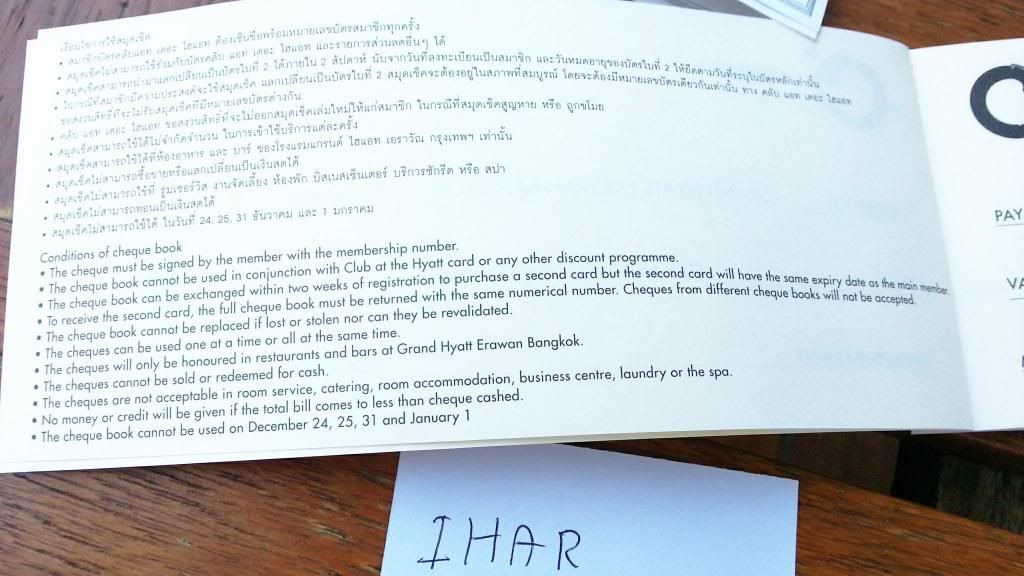 เงื่อนไขการใช้สมุดเช็ค
• สมาชิกบัตรคลับแอท เดอะ ไฮแอท ต้องเซ็นชื่อพร้อมหมายเลขบัตรสมาชิกทุกครั้ง
• สมุดเช็คไม่สามารถใช้ร่วมกับบัตรคลับ แอท เดอะ ไฮแอท และรายการส่วนลดอื่นๆ ได้
• สมุดเช็คสามารถนำมาแลกเปลี่ยนเป็นบัตรใบที่ 2 ได้ภายใน 2 สัปดาห์ นับจากวันที่ลงทะเบียนเป็นสมาชิก และวันหมดอายุของบัตรใบที่ 2 ให้ยึดตามวันที่ระบุในบัตรหลักเท่านั้น
• ในกรณีที่สมาชิกมีความประสงค์จะใช้สมุดเช็ค แลกเปลี่ยนเป็นบัตรใบที่ 2 สมุดเช็คจะต้องอยู่ในสภาพที่สมบูรณ์ โดยจะต้องมีหมายเลขบัตรเดียวกันเท่านั้น ทาง คลับ แอท เดอะ ไฮแอท
ขอสงวนสิทธิ์ที่จะไม่รับสมุดเช็คที่มีหมายเลขบัตรต่างกัน
• คลับ แอท เดอะ ไฮแอท ขอสงวนสิทธิ์ที่จะไม่ออกสมุดเช็คเล่มใหม่ให้แก่สมาชิก ในกรณีที่สมุดเช็คสูญหาย หรือ ถูกขโมย
• สมุดเช็คสามารถใช้ได้ไม่จำกัดจำนวน ในการเข้าใช้บริการแต่ละครั้ง
• สมุดเช็คสามารถใช้ได้ที่ห้องอาหาร และ บาร์ ของโรงแรมแกรนด์ ไฮแอท เอราวัณ กรุงเทพฯ เท่านั้น
• สมุดเช็คไม่สามารถซื้อขายหรือแลกเปลี่ยนเป็นเงินสดได้
• สมุดเช็คไม่สามารถใช้ที่ รูมเซอร์วิส งานจัดเลี้ยง ห้องพัก บิสเนสเซ็นเตอร์ บริการซักรีด หรือ สปา
• สมุดเช็คไม่สามารถทอนเป็นเงินสดได้
• สมุดเช็คไม่สามารถใช้ได้ ในวันที่ 24, 25, 31 ธันวาคม และ 1 มกราคม
Conditions of cheque book
• The cheque must be signed by the member with the membership number.
• The cheque book cannot be used in conjunction with Club at the Hyatt card or any other discount programme.
• The cheque book can be exchanged within two weeks of registration to purchase a second card but the second card will have the same expiry date as the main member.
• To receive the second card, the full cheque book must be returned with the same numerical number. Cheques from different cheque books will not be accepted.
• The cheque book cannot be replaced if lost or stolen nor can they be revalidated.
• The cheques can be used one at a time or all at the same time.
• The cheques will only be honoured in restaurants and bars at Grand Hyatt Erawan Bangkok.
• The cheques cannot be sold or redeemed for cash.
• The cheques are not acceptable in room service, catering, room accommodation, business centre, laundry or the spa.
• No money or credit will be given if the total bill comes to less than cheque cashed.
• The cheque book cannot be used on December 24, 25, 31 and January 1
PAY
VA
IHAR